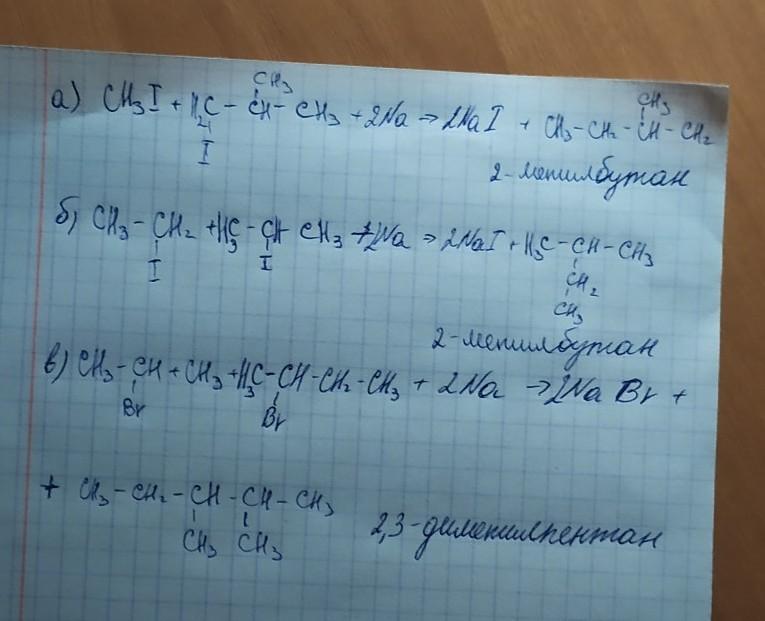 CH₃
CH₃
а) CH₃I + H₂C – CH – CH₃ + 2Na → 2NaI + CH₃–CH₂–CH–CH₂
I
2-метилбутан
б) CH₃ – CH₂ + H₃C – CH CH₃ + 2Na → 2NaI + H₃C – CH – CH₃
I I
CH₂
CH₃
2-метилбутан
в) CH₃ – CH + CH₃ + H₃C – CH – CH₂ – CH₃ + 2Na → 2Na Br +
Br Br
+ CH₃ – CH₂ – CH – CH – CH₃
CH₃ CH₃
2,3-диметилпентан